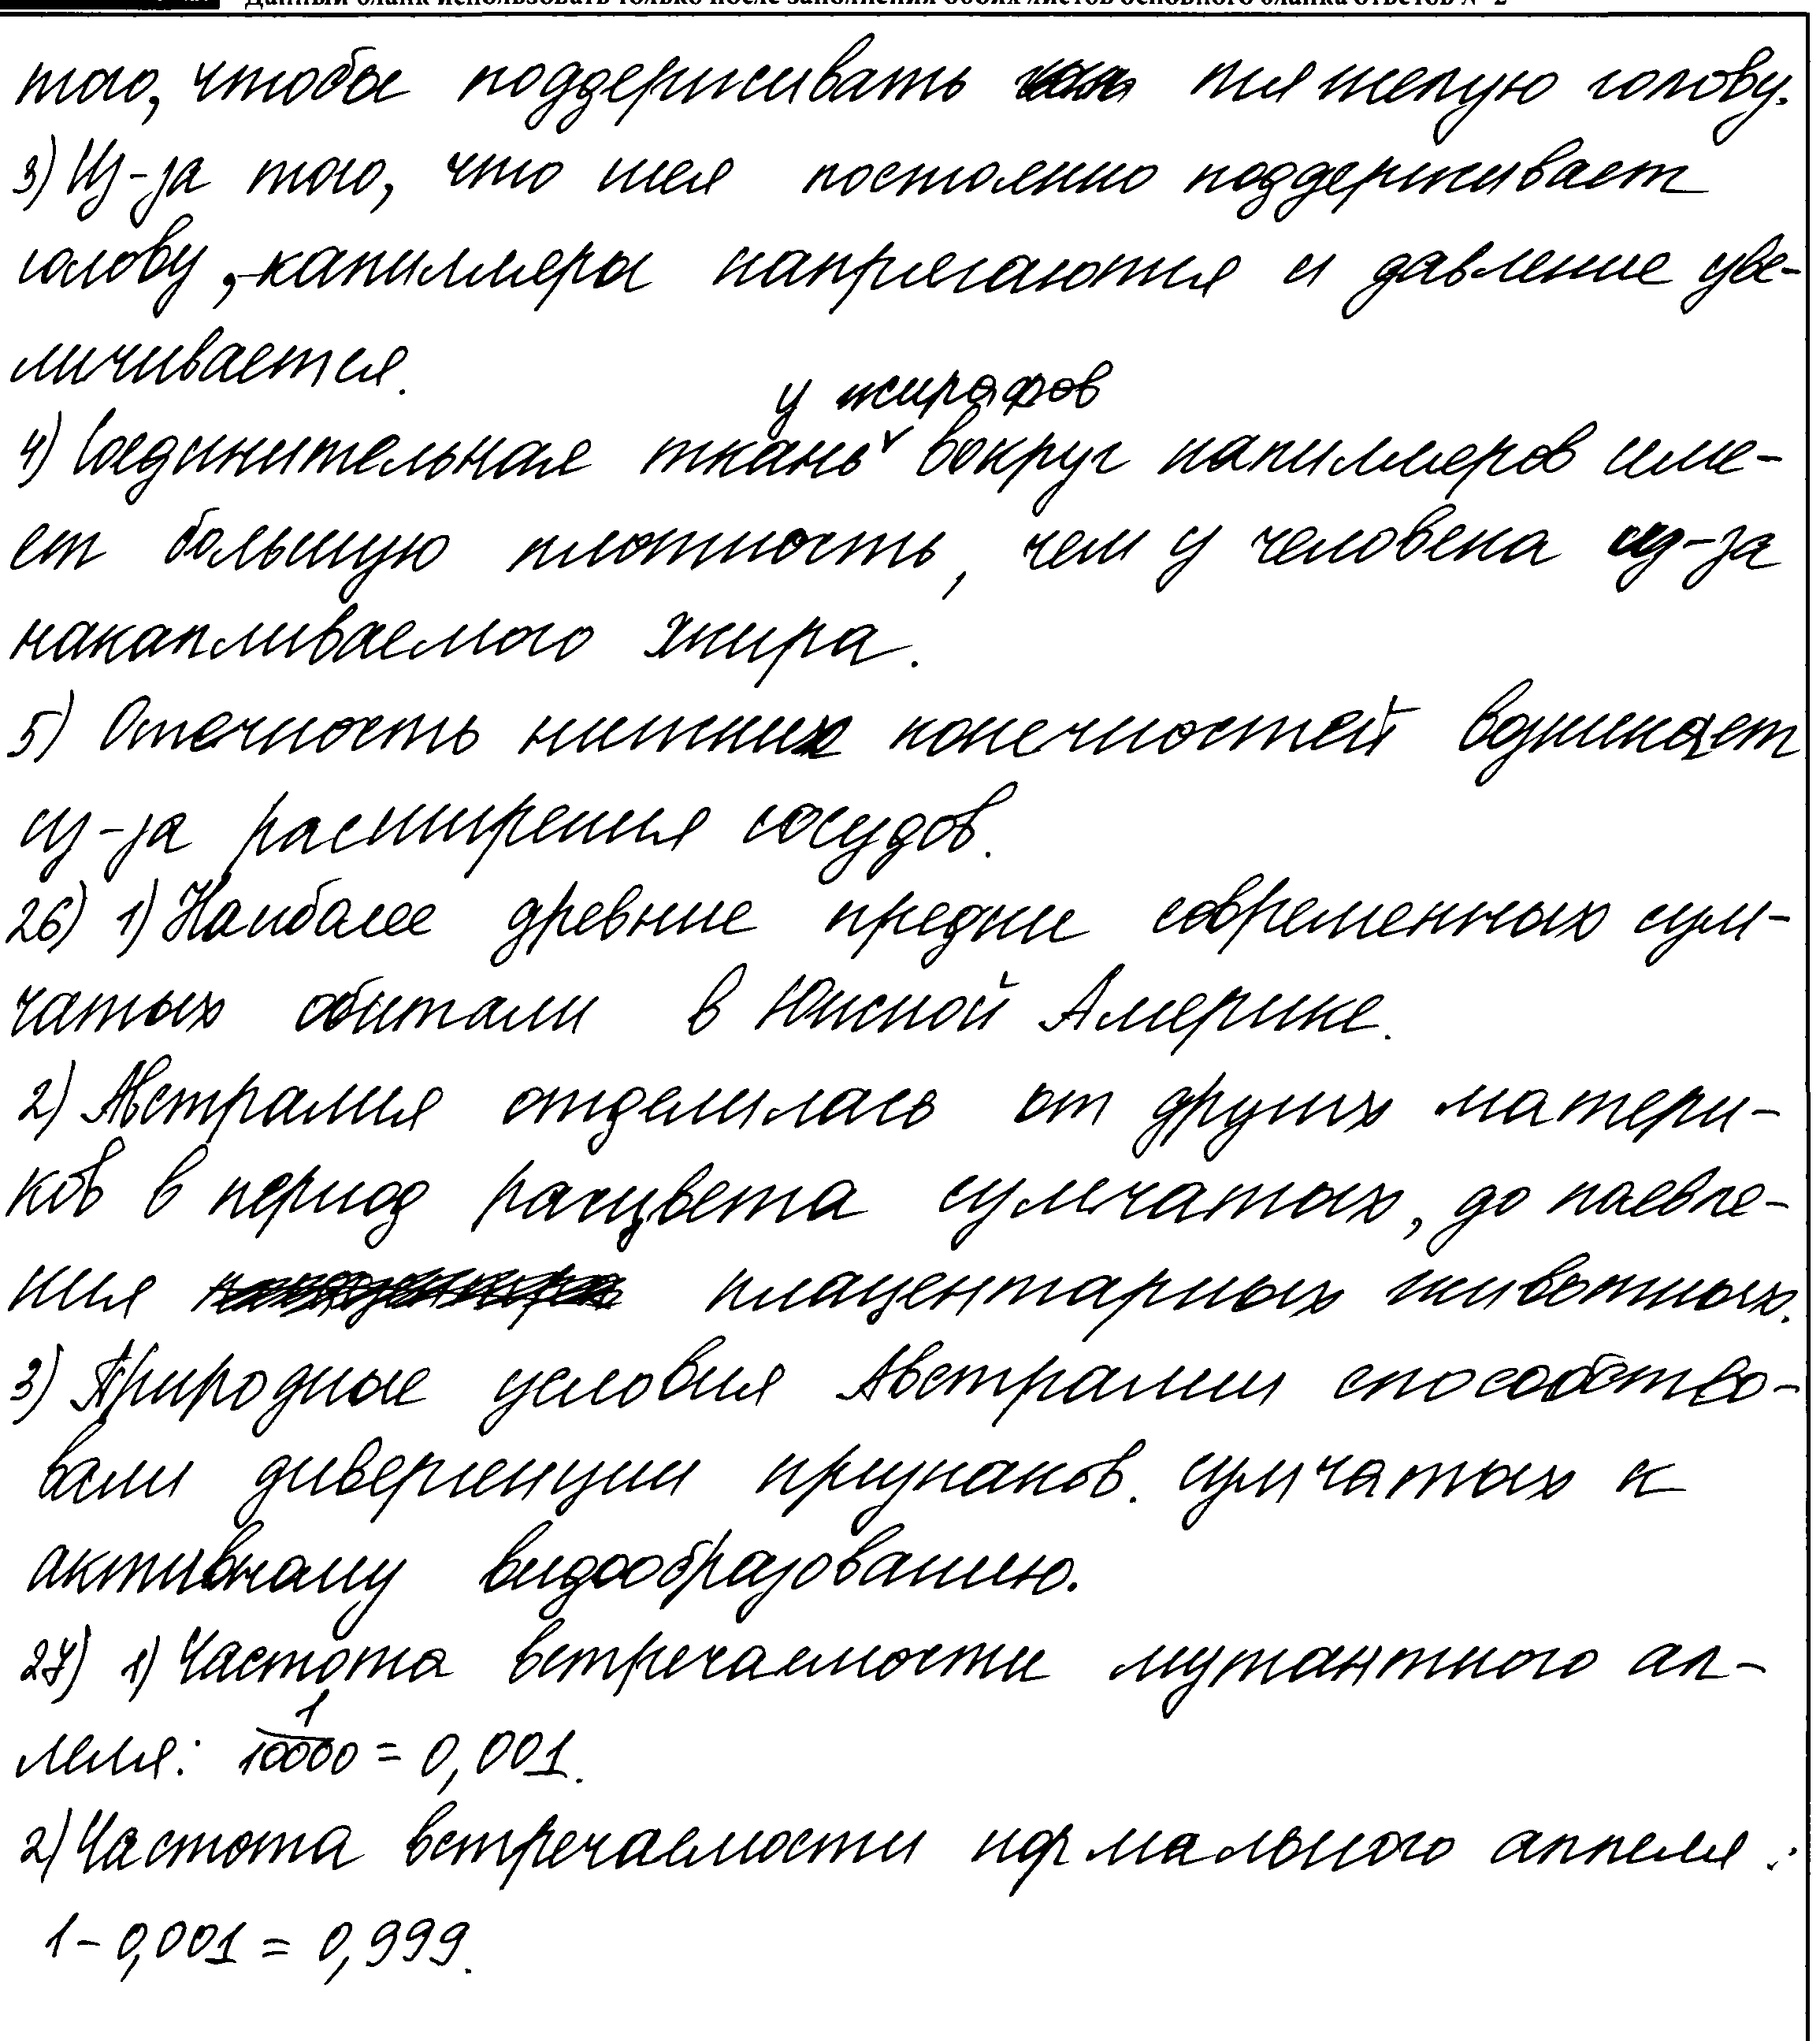 Данный бланк использовать только после заполнения обоих листов основного бланка ответов № 2
того, чтобы поддерживать тяжелую голову.
3) Из-за того, что шея постоянно поддерживает
голову, капилляры напрягаются и давление уве-
личивается.
у жирафов
4) Соединительная ткань вокруг капилляров име-
ет большую плотность, чем у человека из-за
накапливаемого жира.
5) Отечность нижних конечностей возникает
из-за расширения сосудов.
26) 1) Наиболее древние предки современных сум-
чатых обитали в Южной Америке.
2) Австралия отделилась от других матери-
ков в период расцвета сумчатых, до появле-
ния плацентарных животных.
3) Природные условия Австралии способство-
вали дивергенции признаков. сумчатых к
активному видообразованию.
27) 1) Частота встречаемости мутантного ал-
леля: 1/10000 = 0,001.
2) Частота встречаемости нормального аллеля:
1 - 0,001 = 0,999.